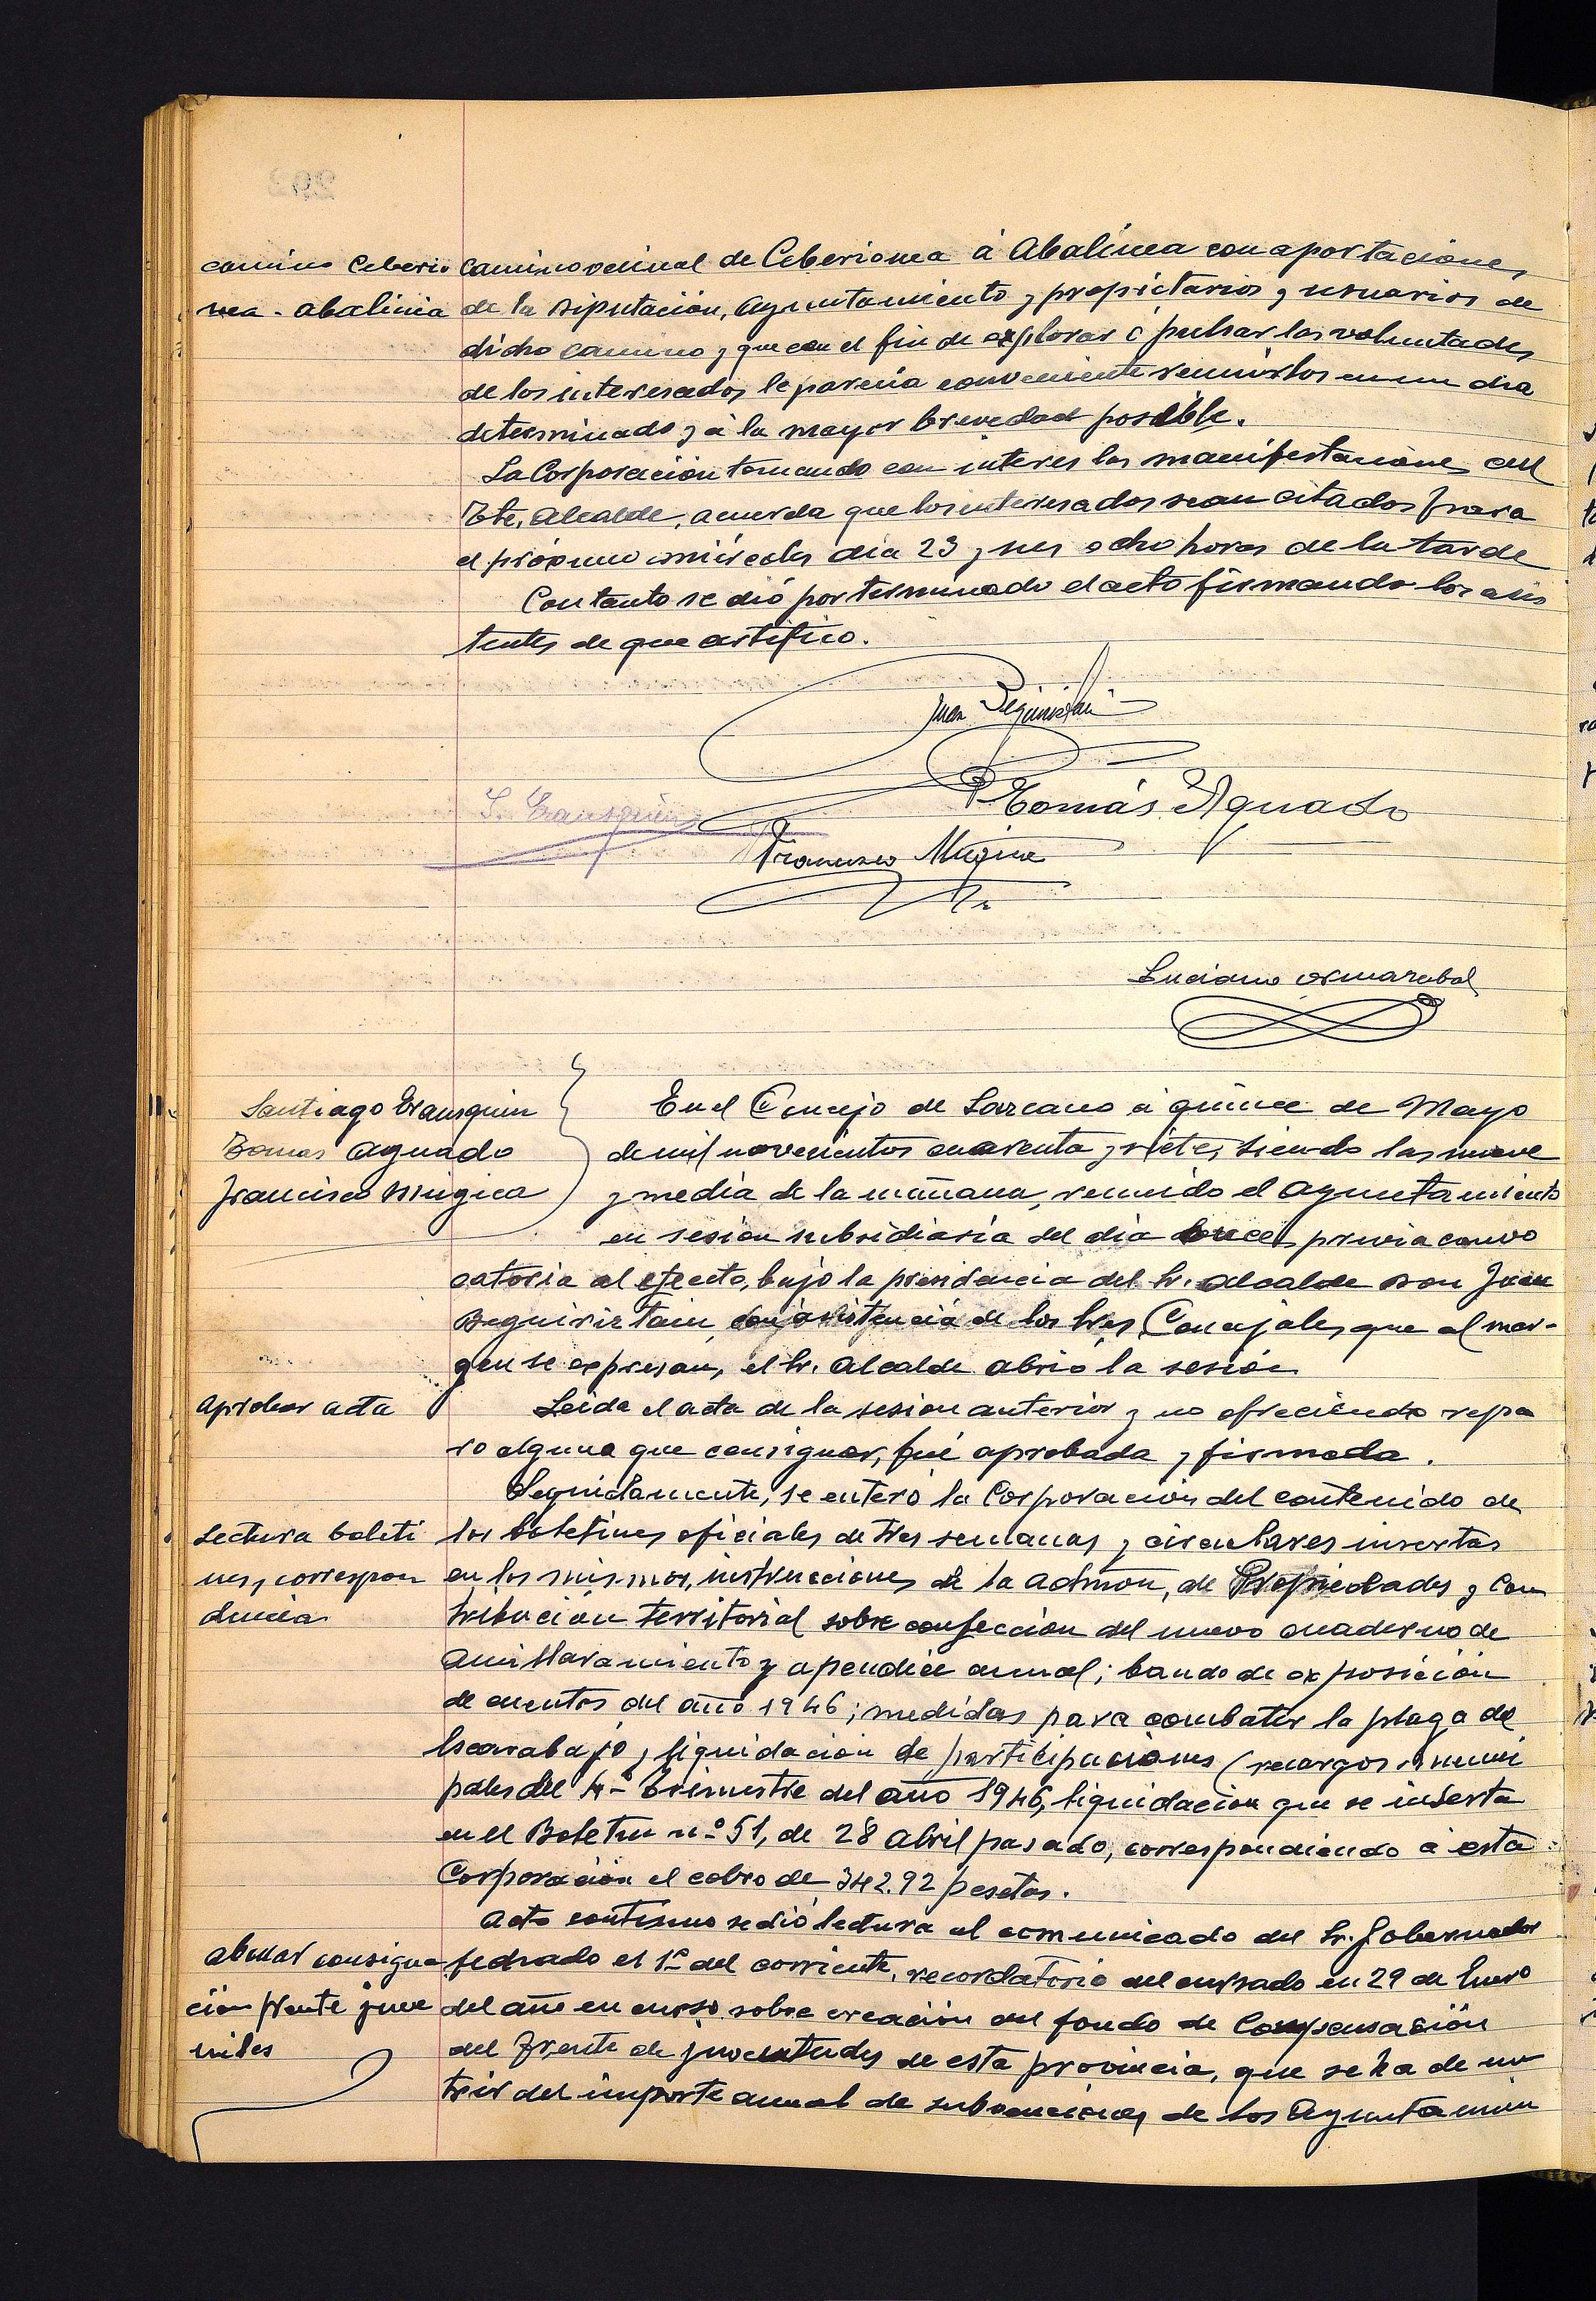 camino Ceberio
nea - abalinia
Camino vecinal de Ceberionea á Abalinea con aportaciones
de la Diputación, Ayuntamiento y propietarios y usuarios de
dicho camino y que con el fin de explorar ó pulsar las voluntades
de los interesados le parecia conveniente reunirlos en un dia
determinado y á la mayor brevedad posible.
La Corporacion tomando con interes las manifestaciones del
Tte. Alcalde, acuerda que los interesados sean citados para
el próximo miércoles dia 23 y ocho horas de la tarde
Con tanto se dió por terminado el acto firmando los asis
tentes de que certifico.
Juan
Tomás Aguado
Francisco Mugica
Luciano Ormazabal
Santiago Erausquin
Tomas Aguado
Francisco Mugica
En el Concejo de Lazcano á quince de Mayo
de mil novecientos cuarenta y siete, siendo las nueve
y media de la mañana, reunido el Ayuntamiento
en sesion subsidiaria del dia previa convo
catoria al efecto, bajo la presidencia del Sr. Alcalde Don Juan
Beguiristain, con asistencia de los Sres Concejales que al mar-
gen se expresan, el Sr. Alcalde abrió la sesión
Aprobar acta
Leida el acta de la sesion anterior y no ofreciendo repa
ro alguno que consignar, fué aprobada y firmada.
Seguidamente, se enteró la Corporacion del contenido de
Lectura boleti
nes, correspon
dencia
los boletines oficiales de tres semanas y circulares insertas
en los mismos, instrucciones de la Admon, de Propiedades y Con
tribucion territorial sobre confeccion del nuevo cuaderno de
Amillaramiento y apendice anual; bando de exposición
de cuentas del año 1946; medidas para combatir la plaga del
Escarabajo, liquidacion de participaciones (recargos munici
pales del 4º trimestre del año 1946, liquidacion que se inserta
en el Boletin nº 51, de 28 Abril pasado, correspondiendo á esta
Corporación el cobro de 342.92 pesetas.
Acto continuo se dió lectura al comunicado del Sr. Gobernador
abonar consigna
cion frente juve
niles
fechado el 1º del corriente, recordatorio del cursado en 29 de Enero
del año en curso sobre creacion del fondo de Compensación
del Frente de Juventudes de esta provincia, que se ha de nu
trir del importe anual de subvenciones de los Ayuntamien